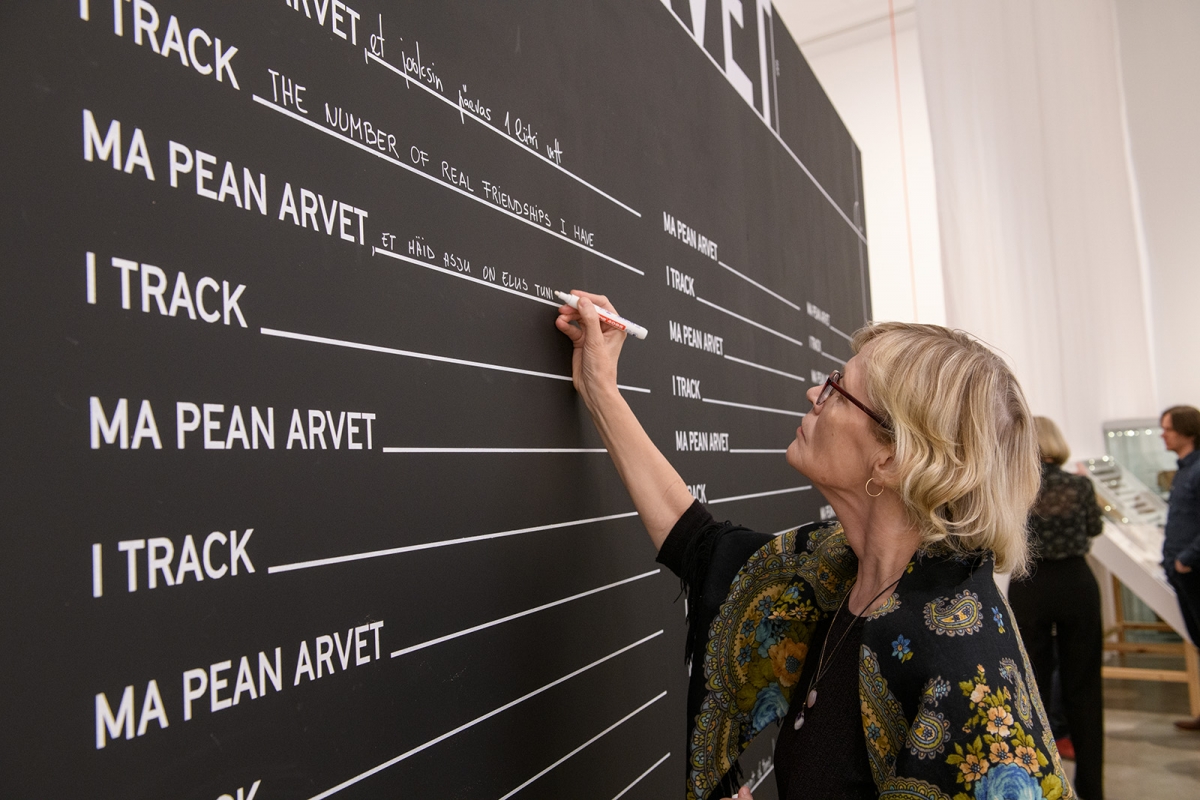 ARVET, et jooksin päevas 1 liitri vett
I TRACK THE NUMBER OF REAL FRIENDSHIPS I HAVE
MA PEAN ARVET, ET HÄID ASJU ON ELUS TUNI
I TRACK
MA PEAN ARVET
I TRACK
MA PEAN ARVET
CK
MA PEAN ARVET
I TRACK
MA PEAN ARVET
I TRACK
MA PEAN ARVET
ACK
MA PEAN ARVET
I TRACK
MA PEAN